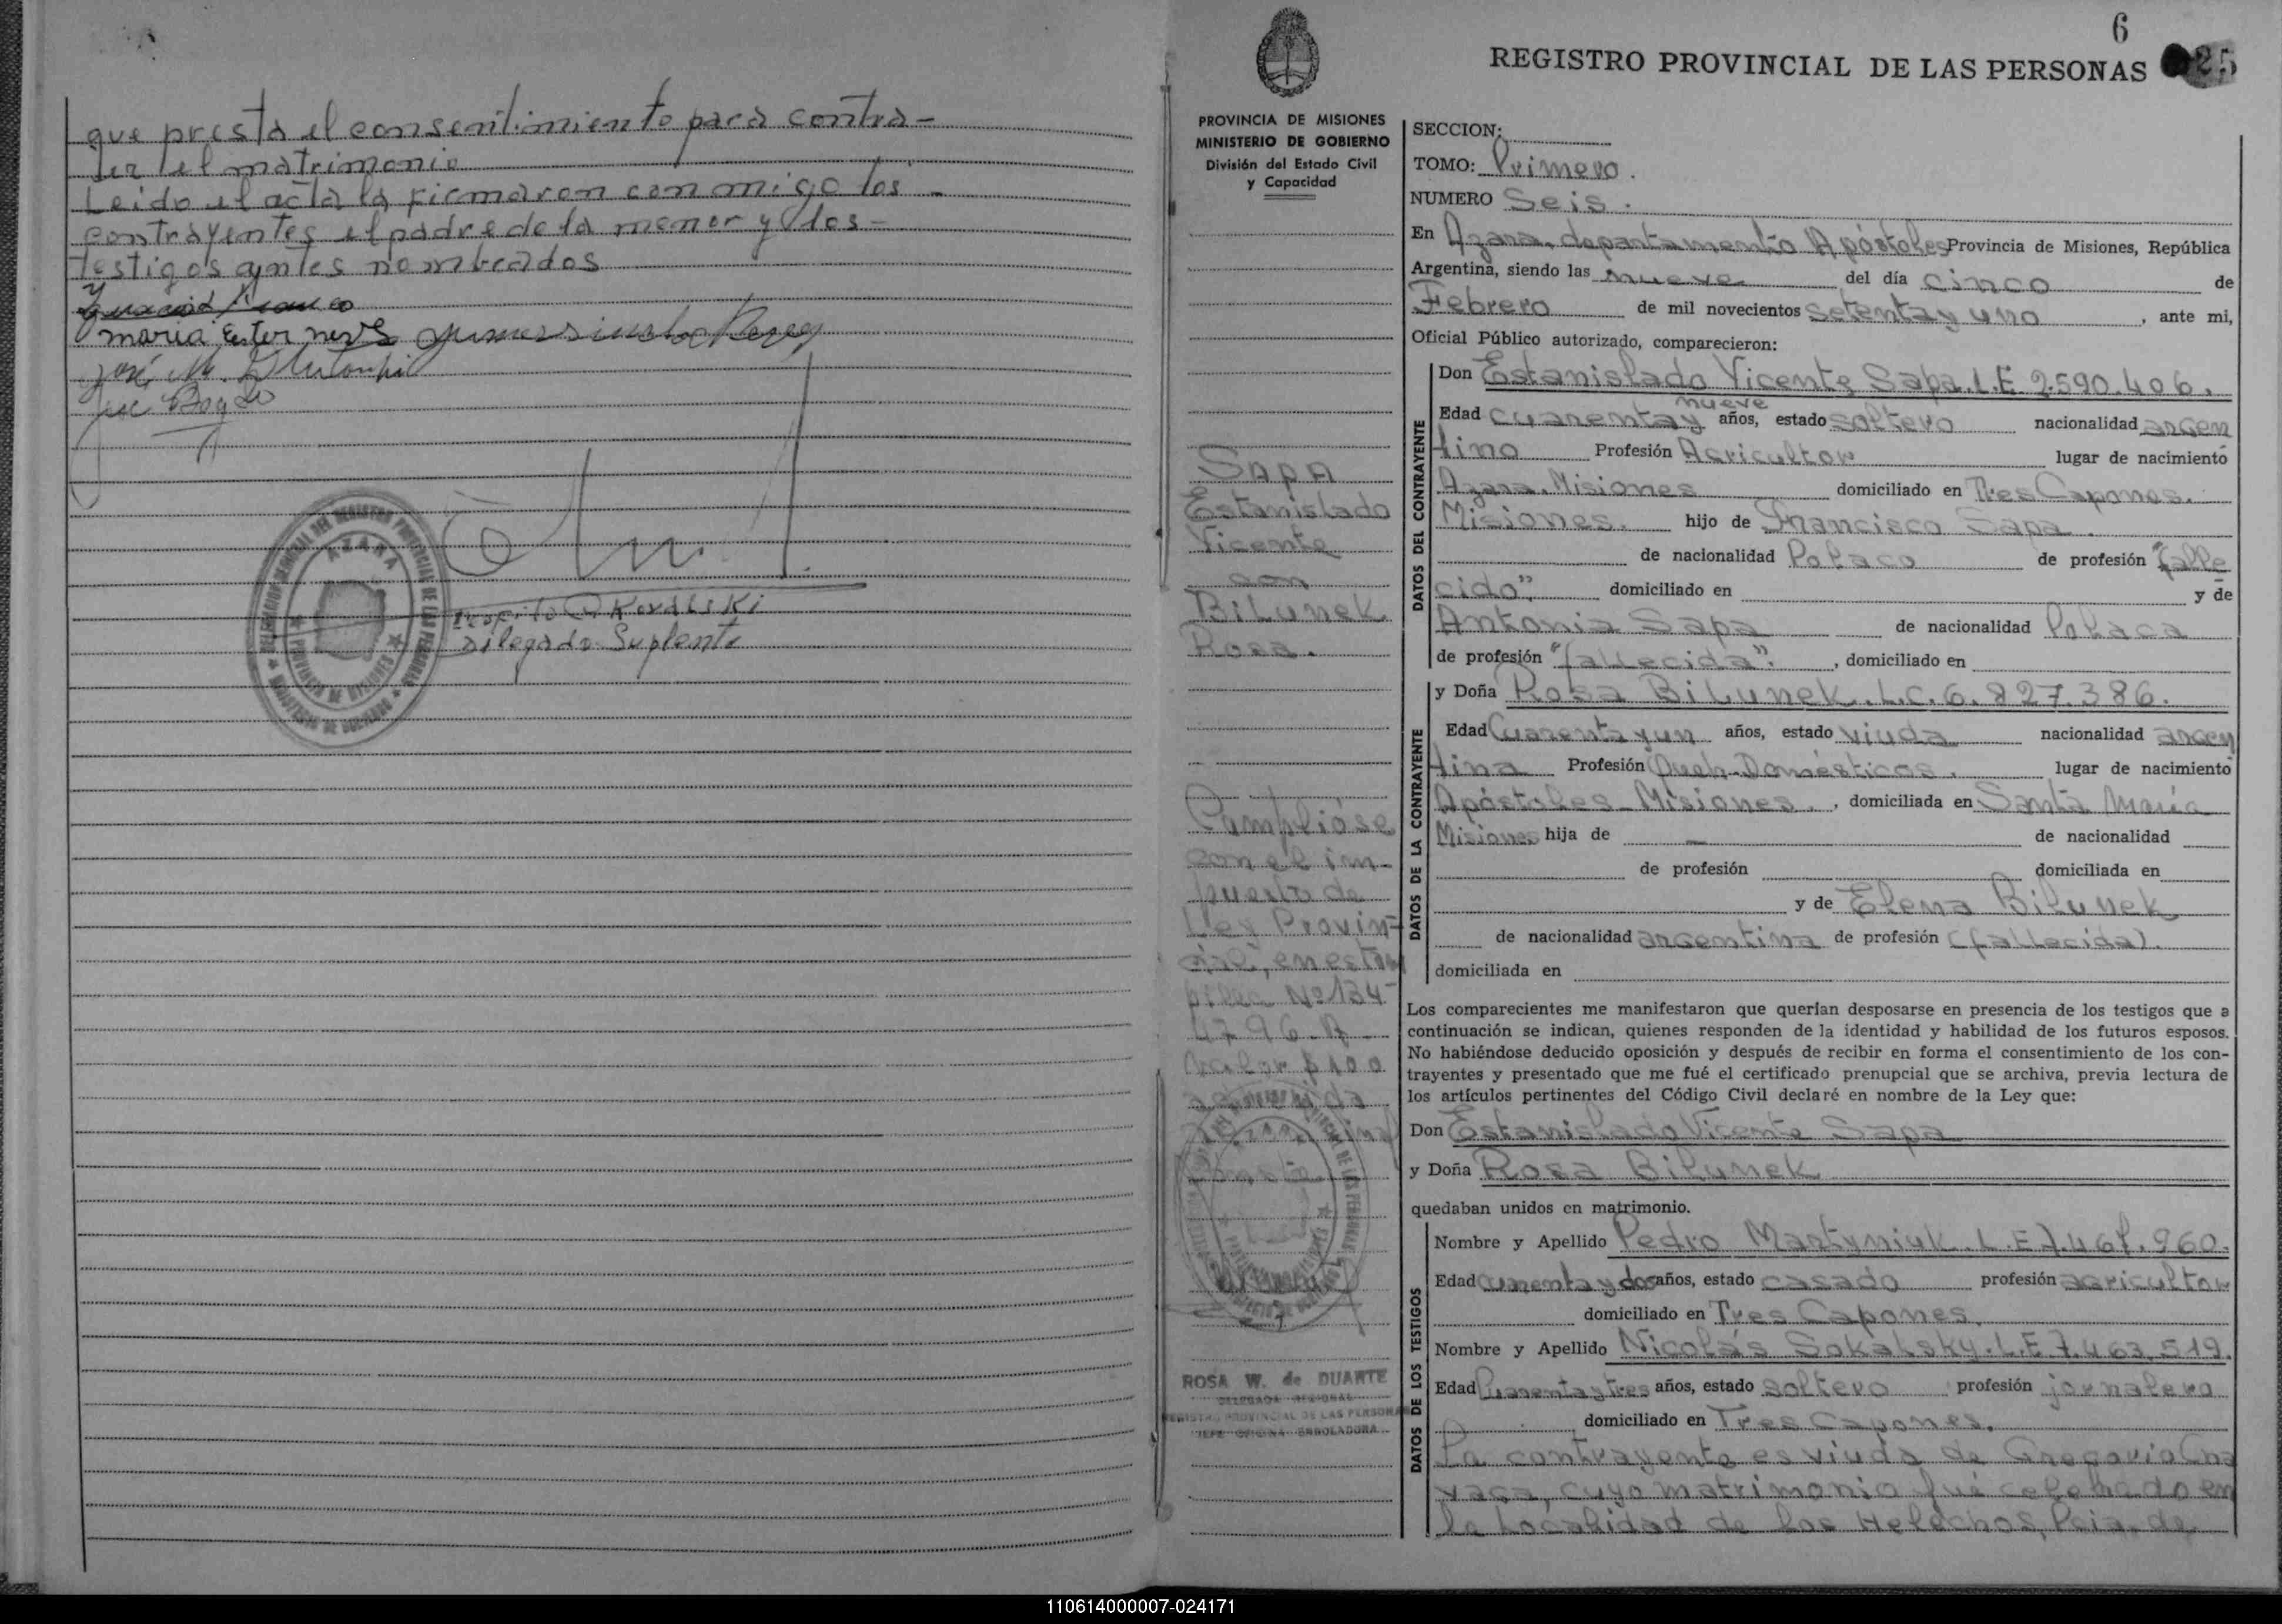 que presta el consentimiento para contra-
er el matrimonio
Leido el acta la firmaron conmigo los -
contrayentes el padre de la menor y los -
testigos antes nombrados
maria Ester neris
José M.
AZARA
Kovalski
delegado Suplente
6
REGISTRO PROVINCIAL DE LAS PERSONAS
25
PROVINCIA DE MISIONES
MINISTERIO DE GOBIERNO
División del Estado Civil
y Capacidad
Sapa
Estanislado
Vicente
con
Bilunek
Rosa.
Cumplióse
con el im-
puesto de
Ley Provin=
cial, en estam
pilla Nº 134-
4796.A
valor $ 100
ROSA W. de DUARTE
DELEGADA REGIONAL
REGISTRO PROVINCIAL DE LAS PERSONAS
JEFE OFICINA ENROLADORA
SECCION:
TOMO: Primero.
NUMERO Seis.
En Azara, departamento Apóstoles Provincia de Misiones, República
Argentina, siendo las nueve del día cinco de
Febrero de mil novecientos setenta y uno, ante mi,
Oficial Público autorizado, comparecieron:
DATOS DEL CONTRAYENTE
Don Estanislado Vicente Sapa. L.E 2.590.406.
nueve
Edad cuarenta y años, estado soltero nacionalidad argen
tino Profesión Agricultor lugar de nacimiento
Azara. Misiones domiciliado en Tres Capones.
Misiones. hijo de Francisco Sapa.
de nacionalidad Polaco de profesión "falle
cido", domiciliado en y de
Antonia Sapa de nacionalidad Polaca
de profesión "fallecida"., domiciliado en
DATOS DE LA CONTRAYENTE
y Doña Rosa Bilunek. L.C. 6.827.386.
Edad Cuarenta y un años, estado viuda nacionalidad argen
tina Profesión Queh. Domésticos. lugar de nacimiento
Apóstoles - Misiones., domiciliada en Santa María
Misiones hija de — de nacionalidad
de profesión domiciliada en
y de Elena Bilunek
de nacionalidad argentina de profesión (fallecida).
domiciliada en
Los comparecientes me manifestaron que querían desposarse en presencia de los testigos que a
continuación se indican, quienes responden de la identidad y habilidad de los futuros esposos.
No habiéndose deducido oposición y después de recibir en forma el consentimiento de los con-
trayentes y presentado que me fué el certificado prenupcial que se archiva, previa lectura de
los artículos pertinentes del Código Civil declaré en nombre de la Ley que:
Don Estanislado Vicente Sapa
y Doña Rosa Bilunek
quedaban unidos en matrimonio.
DATOS DE LOS TESTIGOS
Nombre y Apellido Pedro Martyniuk. L.E
Edad cuarenta y dos años, estado casado profesión agricultor
domiciliado en Tres Capones.
Nombre y Apellido Nicolás Sokalsky. L.E 7.463.519.
Edad Cuarenta y tres años, estado soltero profesión jornalero
domiciliado en Tres Capones.
La contrayente es viuda de Gregorio
cuyo matrimonio fué celebrado en
la Localidad de los Helechos, Pcia. de
110614000007-024171